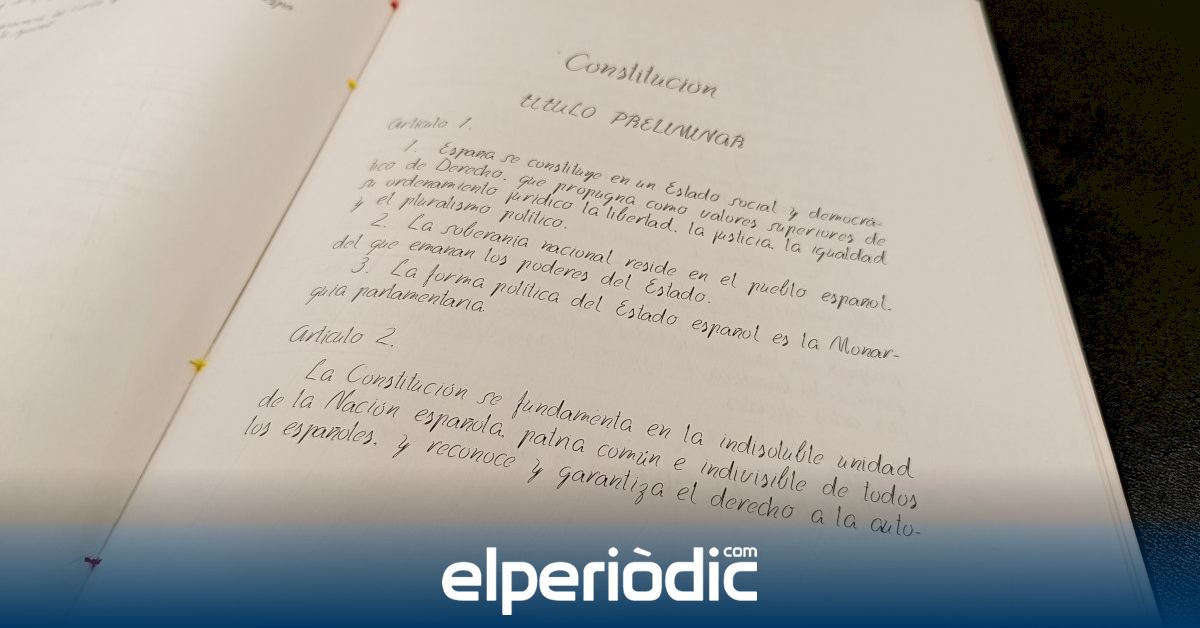 Constitución
TITULO PRELIMINAR
Artículo 1.
1. España se constituye en un Estado social y democrá-
tico de Derecho, que propugna como valores superiores de
su ordenamiento jurídico la libertad, la justicia, la igualdad
y el pluralismo político.
2. La soberanía nacional reside en el pueblo español,
del que emanan los poderes del Estado.
3. La forma política del Estado español es la Monar-
quía parlamentaria.
Artículo 2.
La Constitución se fundamenta en la indisoluble unidad
de la Nación española, patria común e indivisible de todos
los españoles, y reconoce y garantiza el derecho a la auto-
elperiòdic.com